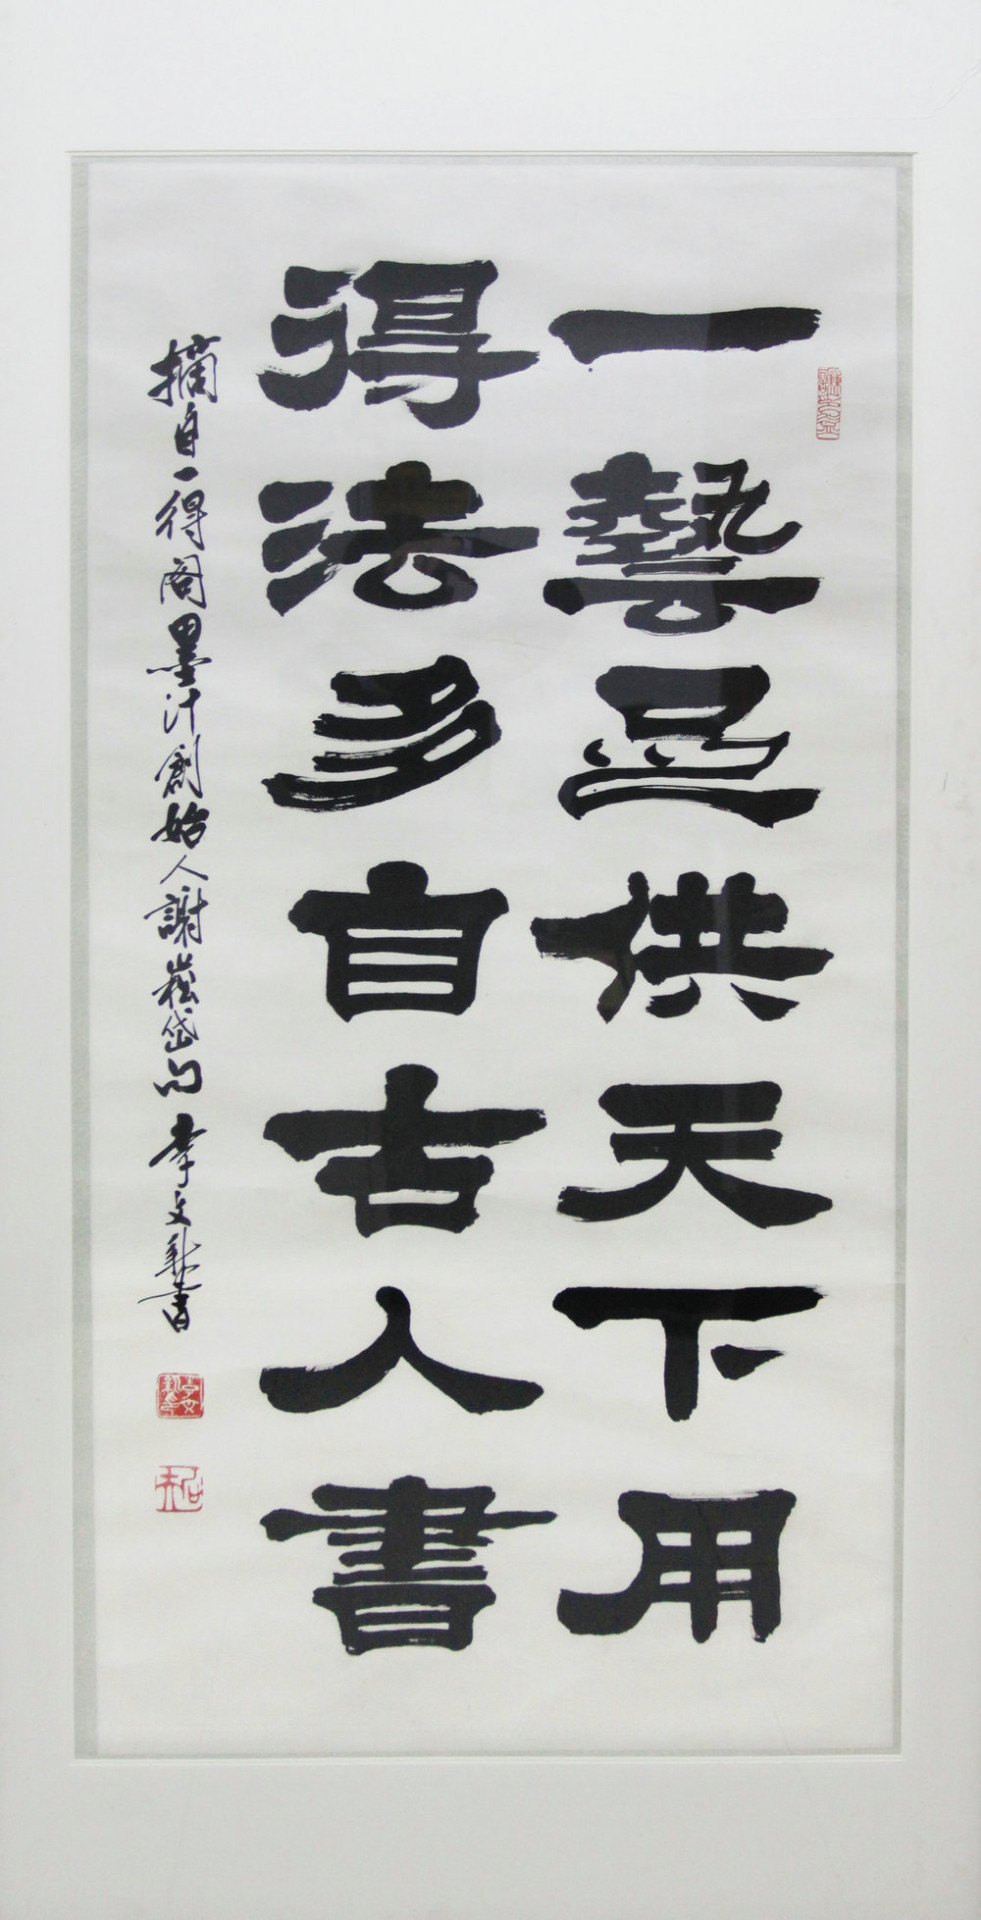 一藝足供天下用
得法多自古人書
摘自一得阁墨汁創始人謝崧岱句 李文新書